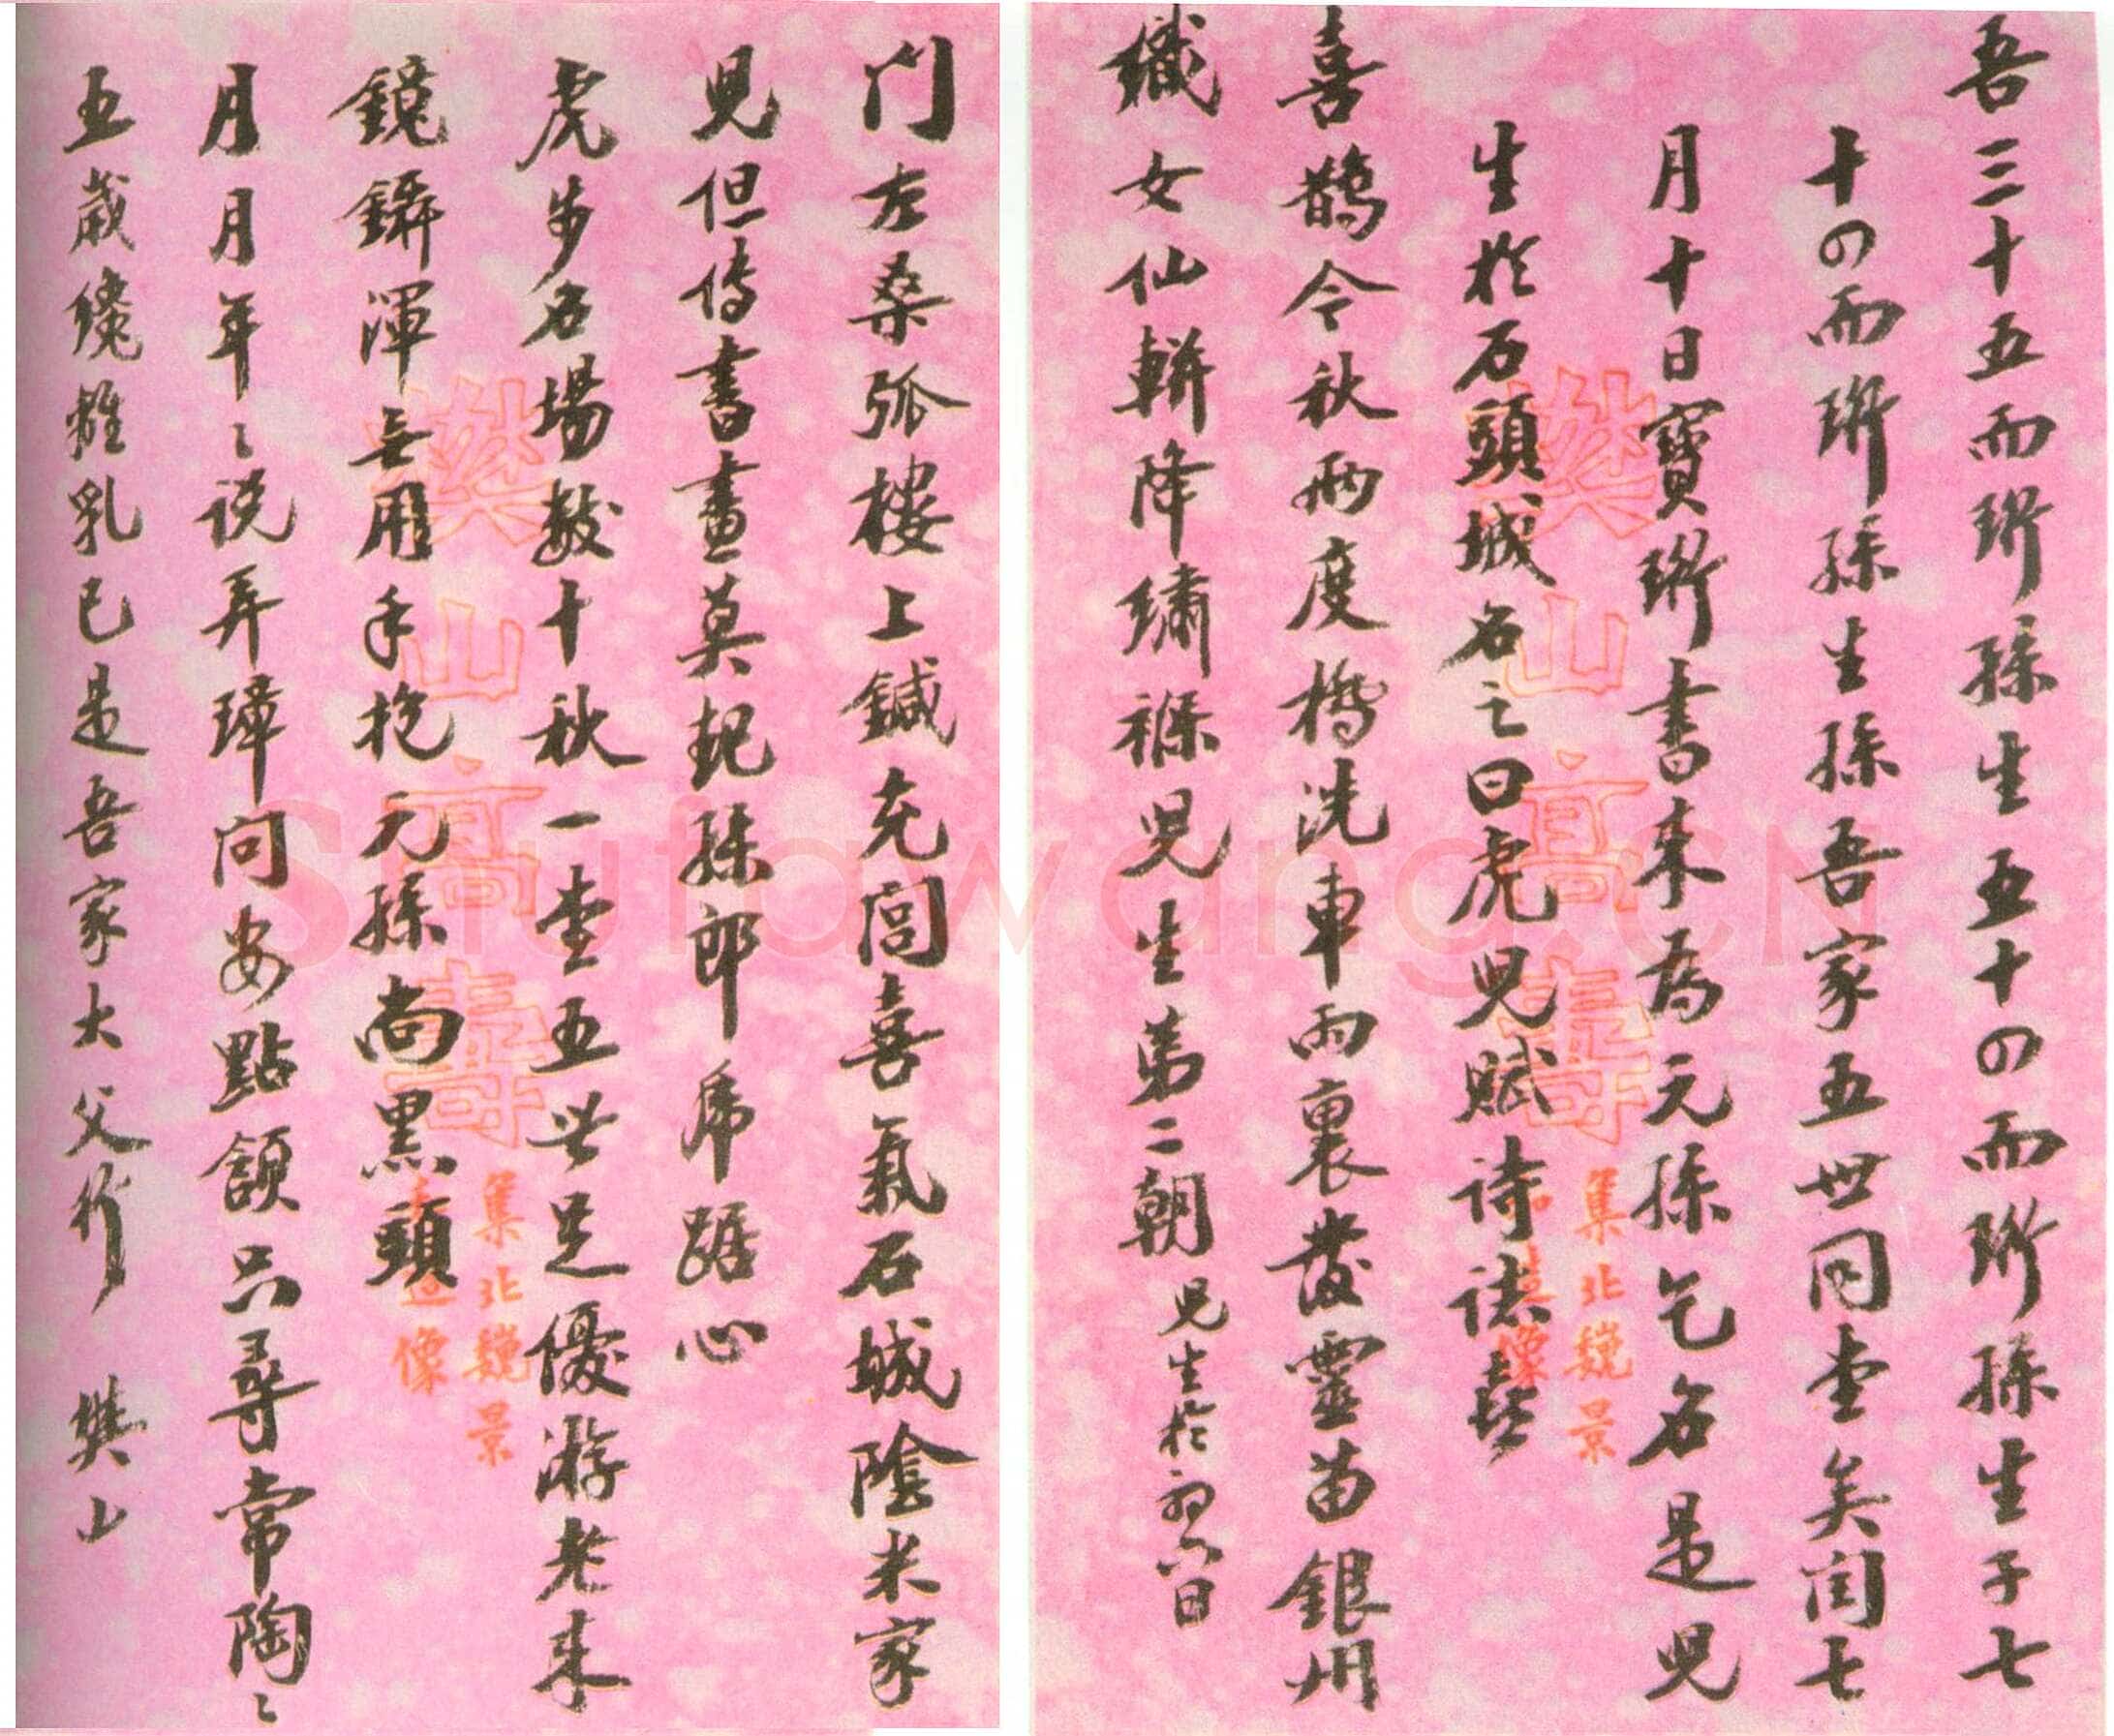 吾三十五而珩孫生五十四而珩孫生子七
十四而珩孫生孫吾家五世同堂矣閏七
月十日寶珩書來為元孫乞名是兒
生於石頭城名之曰虎兒賦詩誌喜
喜鵲今秋兩度橋洗車雨裏發靈苗銀州
織女仙軿降繡褓兒生第二朝 兒生於初八日
門左桑弧樓上鍼充閭喜氣石城陰米家
兒但傳書畫莫起孫郎虎踞心
虎步名場數十秋一堂五世足優游老來
鏡鑷渾無用手抱元孫尚黑頭
月月年〻說弄璋問安點頷只尋常陶〻
五歲纔離乳已是吾家大父行 樊山
樊山高壽
集北魏景
造像
樊山高壽
集北魏景
造像
shufawang.CN